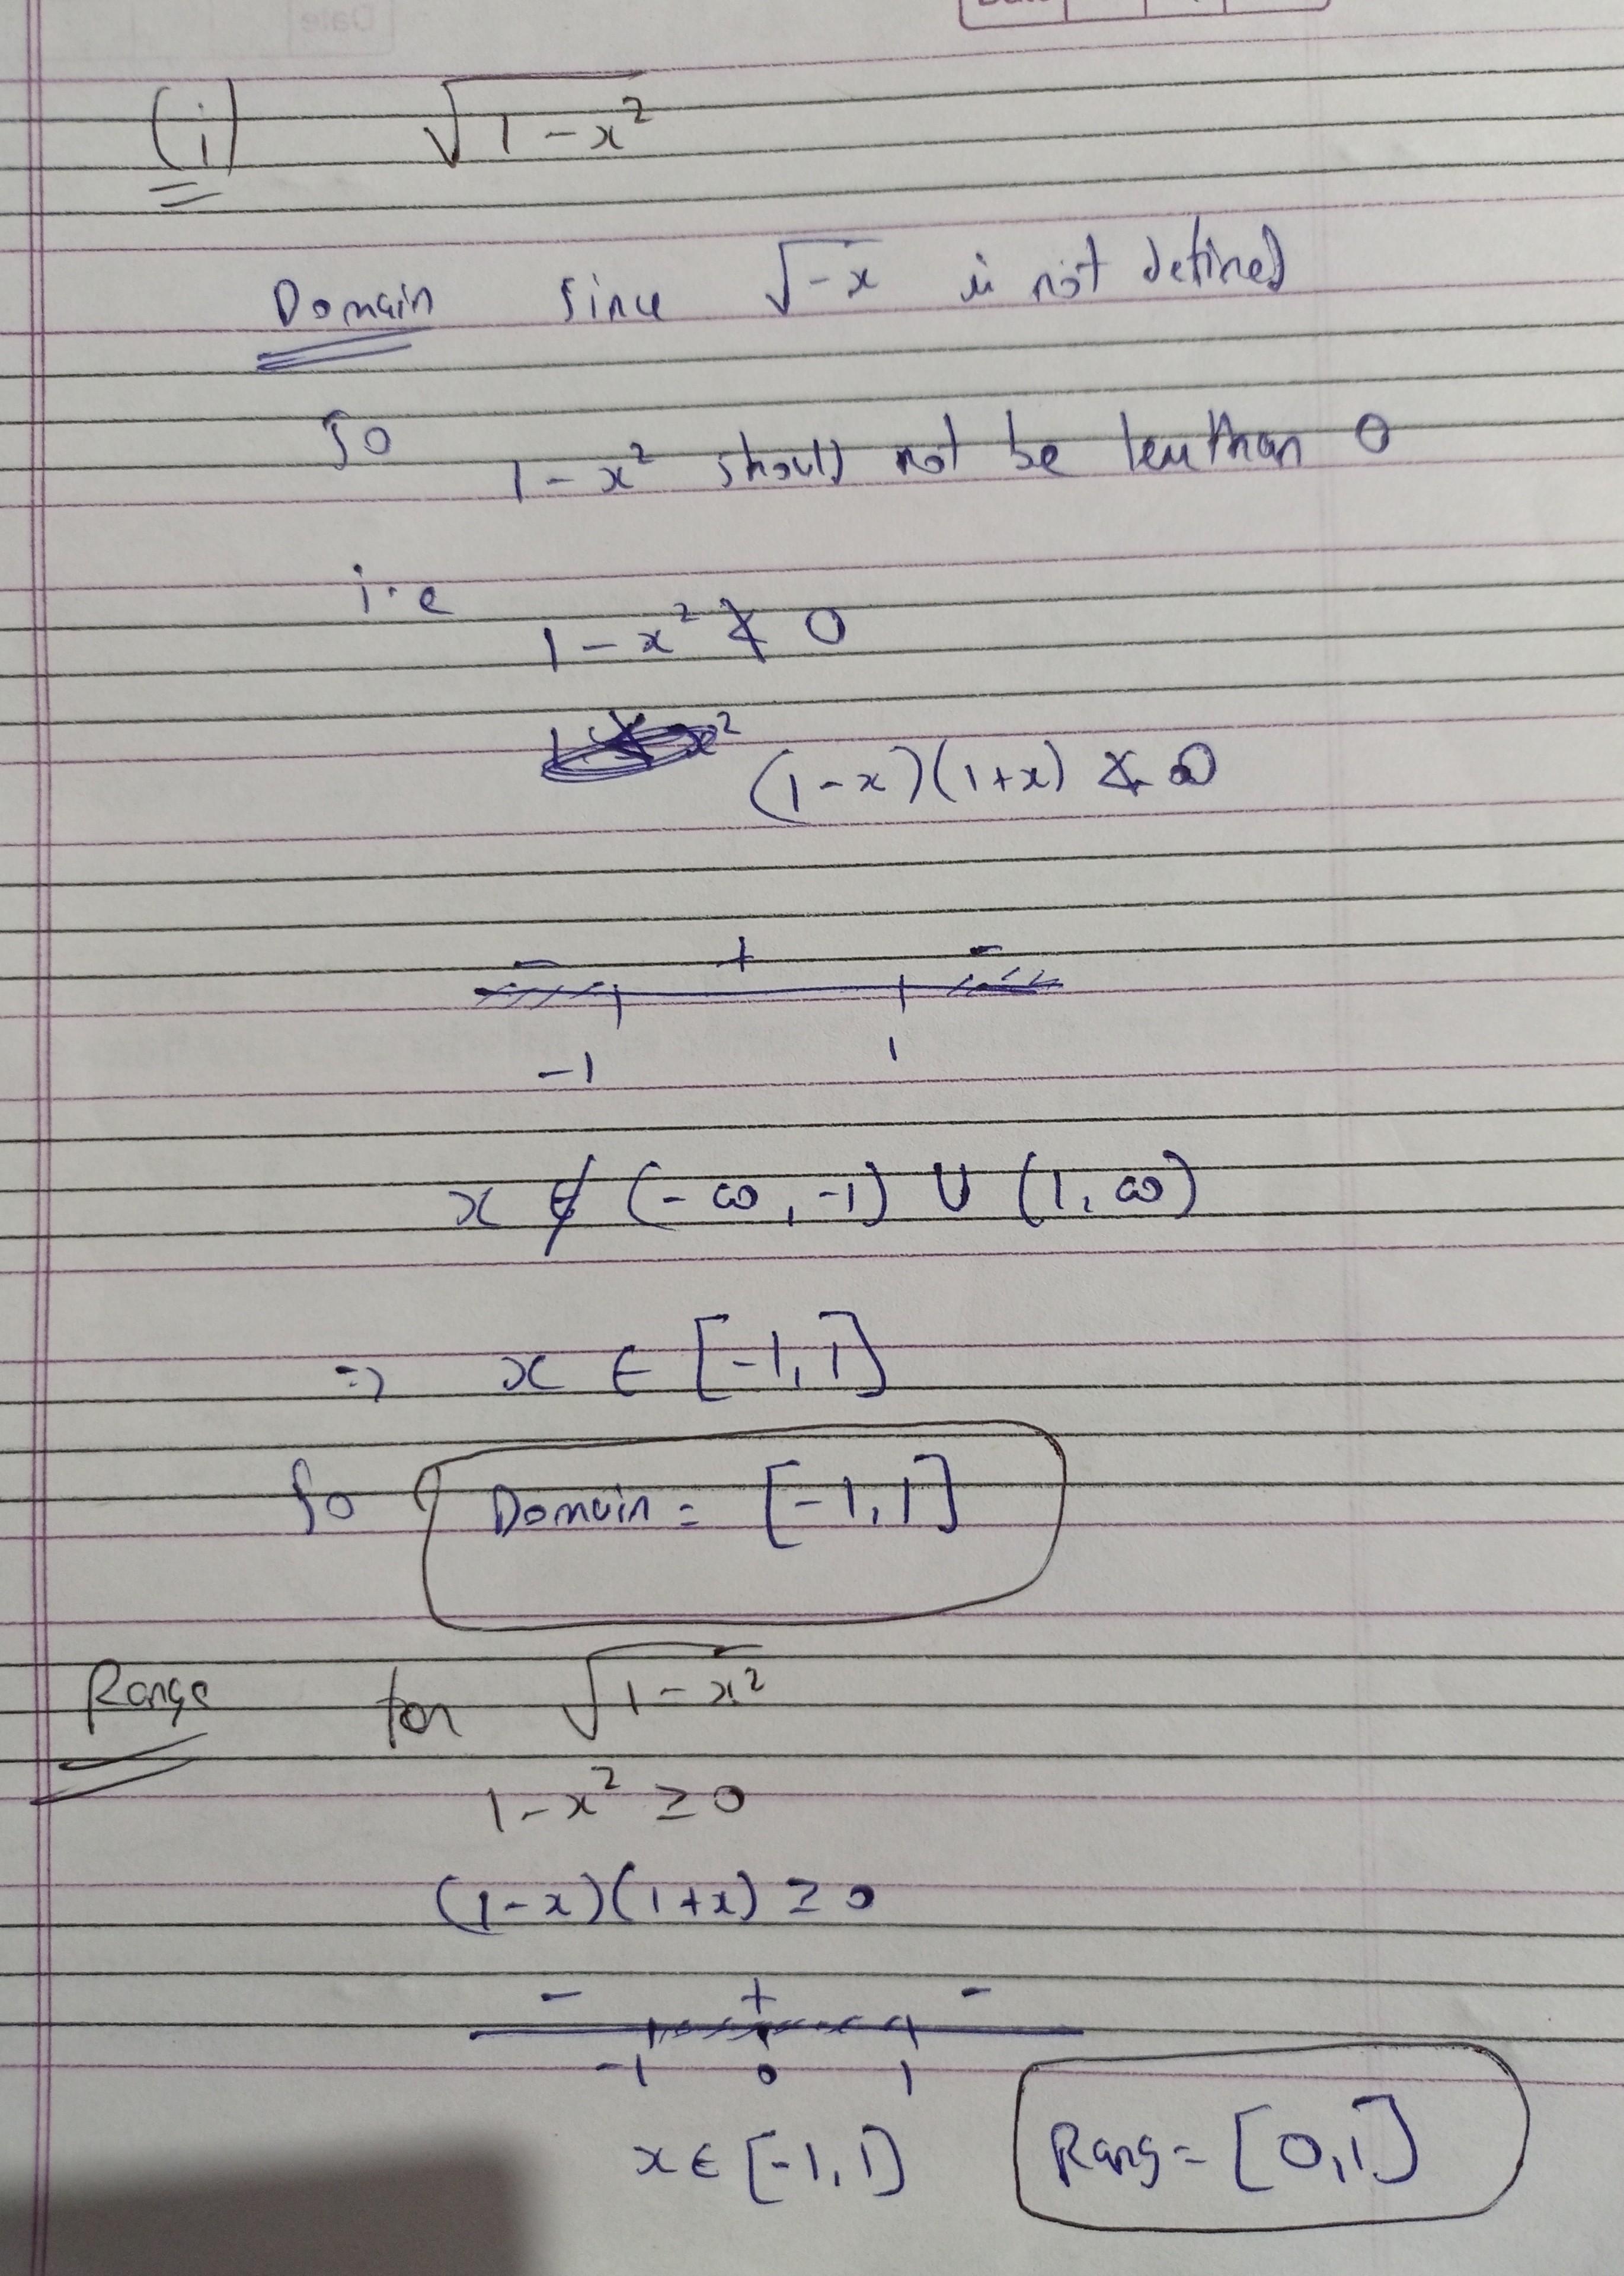 Date
(i) √(1-x²)
Domain Since √-x is not defined
So 1-x² should not be less than 0
i.e
1-x² ≮ 0
(1-x)(1+x) ≮ 0
- + -
-1 1
x ∉ (-∞, -1) ∪ (1, ∞)
⇒ x ∈ [-1, 1]
So Domain = [-1, 1]
Range for √(1-x²)
1-x² ≥ 0
(1-x)(1+x) ≥ 0
- + -
-1 0 1
x ∈ [-1, 1] Rang = [0, 1]